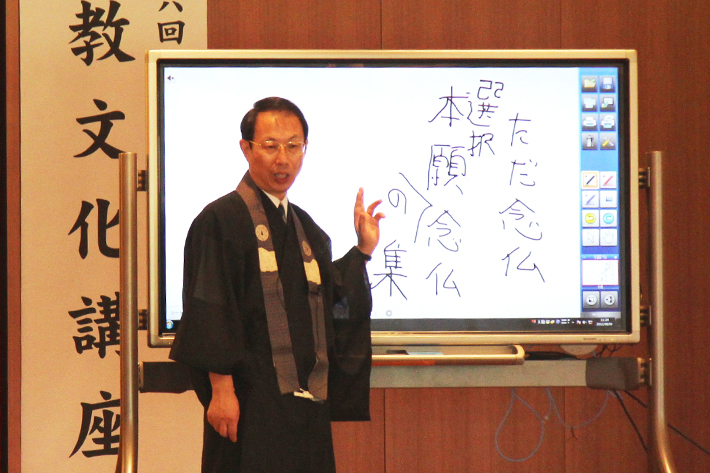 六回
教文化講座
ただ念仏
選択
本願念仏
の集